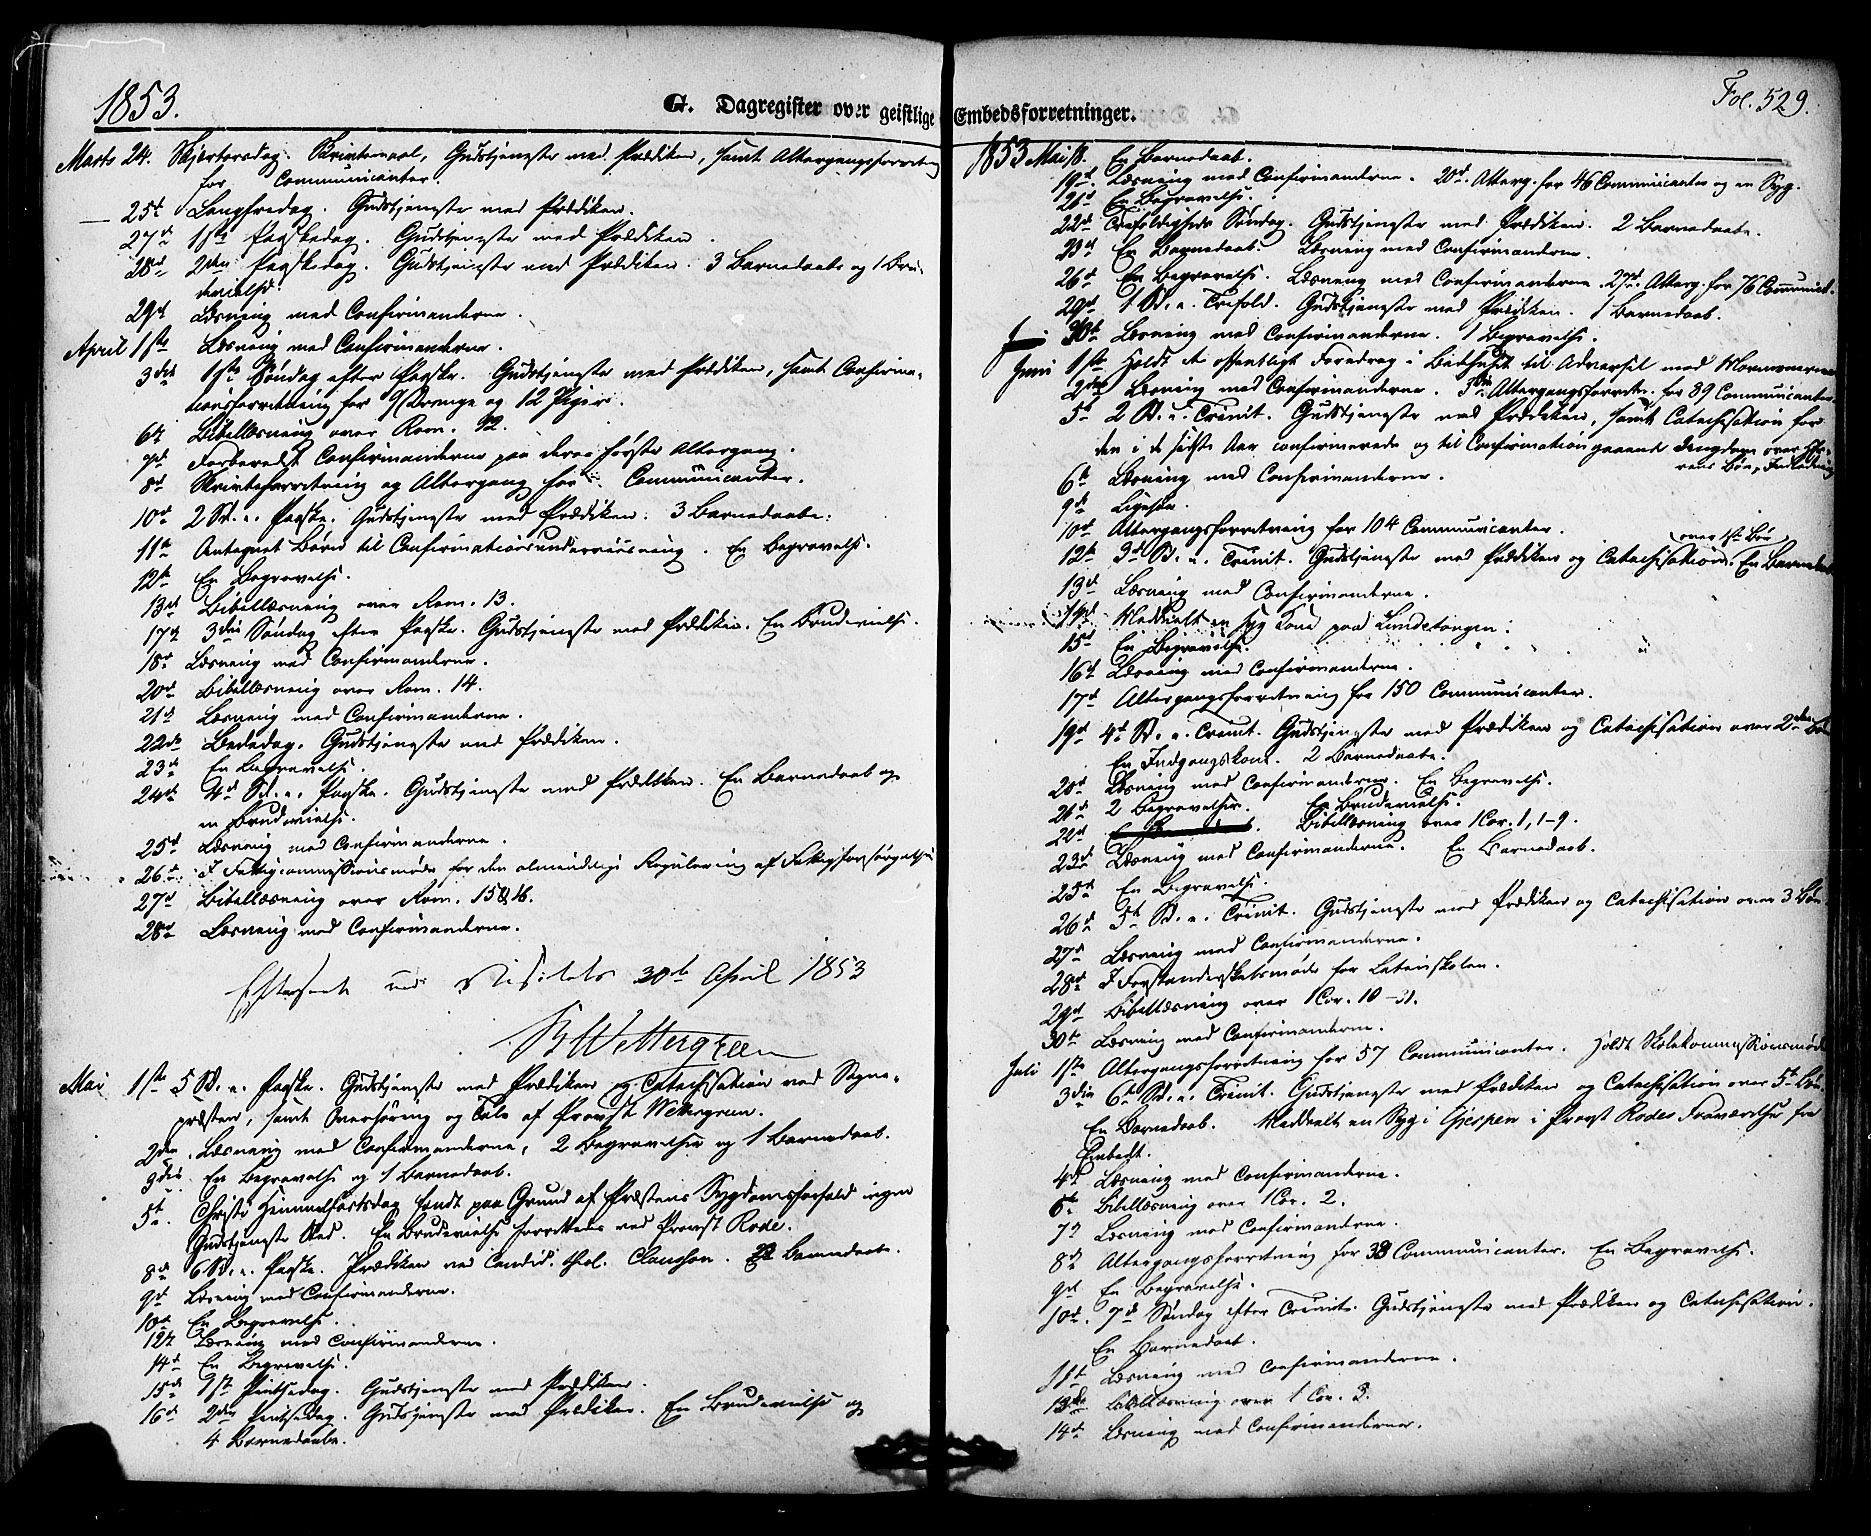 1853.
G. Dagregister over geistlige
Marts 24. Skjærtorsdag. Skriftemaal, Gudstjeneste med Prædiken, samt Altergangsforretning
for Communicanter.
— 25t Langfredag. Gudstjeneste med Prædiken.
27d 1ste Paaskedag. Gudstjeneste med Prædiken.
28d 2den Paaskedag. Gudstjeneste med Prædiken. 3 Barnedaabe og 1 Bru-
devielse.
29d Læsning med Confirmanderne.
April 1ste Læsning med Confirmanderne.
3die 1ste Søndag efter Paaske. Gudstjeneste med Prædiken, samt Confirma-
tionsforretning for 9 Drenge og 12 Piger.
6t Bibellæsning over Rom. 12.
7d Forberedt Confirmanderne paa deres første Altergang.
8d Skrifteforretning og Altergang for Communicanter.
10d 2 Sd. e. Paaske. Gudstjeneste med Prædiken. 3 Barnedaabe.
11te Antegnet Børn til Confirmationsundervisning. En Begravelse.
12te En Begravelse.
13d Bibellæsning over Rom. 13.
17d 3die Søndag efter Paaske. Gudstjeneste med Prædiken. En Brudevielse.
18d Læsning med Confirmanderne.
20d Bibellæsning over Rom. 14.
21d Læsning med Confirmanderne.
22de Bededag. Gudstjeneste med Prædiken.
23d En Begravelse.
24d 4d Sd. e. Paaske. Gudstjeneste med Prædiken. En Barnedaab og
en Brudevielse.
25d Læsning med Confirmanderne.
26d I Fattigcommissionsmøde for den almindelige Regulering af Fattigforsørgelsen
27d Bibellæsning over Rom. 15 & 16.
28d Læsning med Confirmanderne.
Efterseet ved Visitats 30te April 1853
Wettergreen
Mai 1ste 5 Sd. e. Paaske. Gudstjeneste med Prædiken og Catechisation ved Sogne-
præsten, samt Overhøring og Tale af Provst Wettergreen.
2den Læsning med Confirmanderne, 2 Begravelser og 1 Barnedaab.
3die En Begravelse og 1 Barnedaab.
5t Christi Himmelfartsdag fandt paa Grund af Præstens Sygdomsforfald ingen
Gudstjeneste Sted. En Brudevielse forrettedes ved Provst Rode.
8d 6 Sd. e. Paaske. Prædiken ved Candid. theol. Clauson. Barnedaabe.
9d Læsning med Confirmanderne.
10d En Begravelse.
12t Læsning med Confirmanderne.
14d En Begravelse.
15d 1ste Pintsedag. Gudstjeneste med Prædiken.
16d 2den Pintsedag. Gudstjeneste med Prædiken. En Brudevielse og
4 Barnedaabe.
Embedsforretninger.
Fol. 529.
1853 Mai En Barnedaab.
19d Læsning med Confirmanderne. 20d. Alterg. for 46 Communicanter og en Syg.
21d En Begravelse.
22d Trefoldigheds Søndag. Gudstjeneste med Prædiken. 2 Barnedaabe.
23d En Barnedaab. Læsning med Confirmanderne.
26d En Begravelse. Læsning med Confirmanderne. 27d. Alterg. for 76 Communict.
29d 1 Sd. e. Trefold. Gudstjeneste med Prædiken. 1 Barnedaab.
30te Læsning med Confirmanderne. 1 Begravelse.
Juni 1ste Holdt et offentligt Foredrag i Bedehuset til Advarsel mod Mormonerne
2den Læsning med Confirmanderne. 3die Altergangsforretn. for 89 Communicanter.
5t 2 Sd. e. Trinit. Gudstjeneste med Prædiken, samt Catechisation for
den i de sidste Aar confirmerede og til Confirmation gaaende Ungdom over Her-
rens Bøn, Indledning
6te Læsning med Confirmanderne.
9d Ligesaa.
10d Altergangsforretning for 104 Communicanter.
over 1ste Bøn
12te 3d Sd. e. Trinit. Gudstjeneste med Prædiken og Catechisation. En Barnedaab
13d Læsning med Confirmanderne.
14d Meddeelt en syg Kone paa Lundetangen.
15d En Begravelse.
16d Læsning med Confirmanderne.
17d Altergangsforretning for 150 Communicanter.
19d 4d Sd. e. Trinit. Gudstjeneste med Prædiken og Catechisation over 2den Bøn
En Indgangskone. 2 Barnedaabe.
20d Læsning med Confirmanderne. En Begravelse.
21d 2 Begravelser. En Brudevielse.
22d Bibellæsning over 1 Cor. 1, 1-9.
23d Læsning med Confirmanderne. En Barnedaab.
25d En Begravelse.
26d 5t Sd. e. Trinit. Gudstjeneste med Prædiken og Catechisation over 3 Bøn.
27d Læsning med Confirmanderne.
28d I Forstanderskabsmøde for Latinskolen.
29d Bibellæsning over 1 Cor. 10-31.
30te Læsning med Confirmanderne.
Juli 1ste Altergangsforretning for 57 Communicanter. Holdt Skolekommissionsmøde
3die 6te Sd. e. Trinit. Gudstjeneste med Prædiken og Catechisation over 5te Bøn.
En Barnedaab. Meddeelt en Syg i Gjerpen i Provst Rodes Fraværelse fra
Embedet.
4d Læsning med Confirmanderne.
6te Bibellæsning over 1 Cor. 2.
7d Læsning med Confirmanderne.
8d Altergangsforretning for 38 Communicanter. En Begravelse.
9d En Begravelse.
10d. 7d Søndag efter Trinit. Gudstjeneste med Prædiken og Catechisation.
En Barnedaab.
11te Læsning med Confirmanderne.
13d Bibellæsning over 1 Cor. 3.
14d Læsning med Confirmanderne.